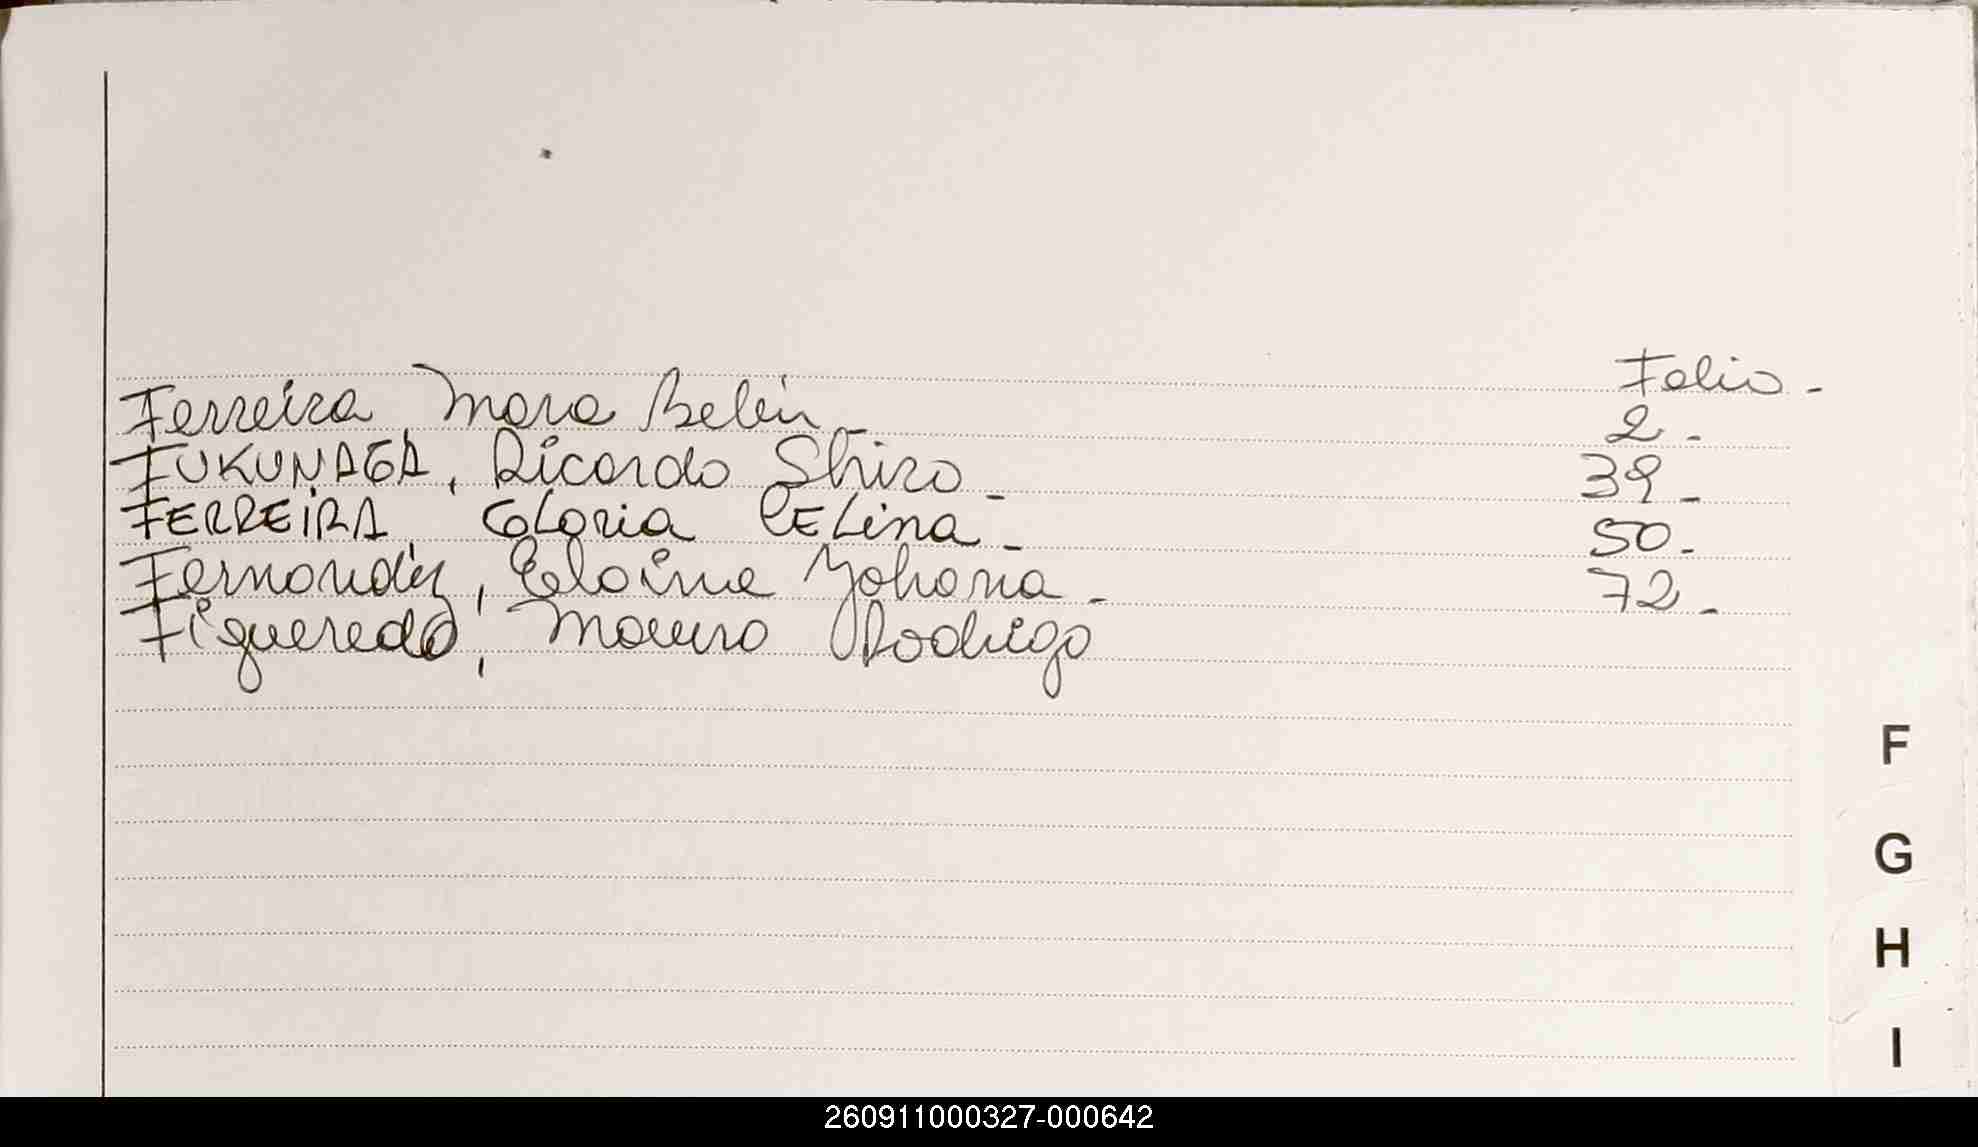 Folio -
Ferreira, Mara Belén - 2 -
FUKUNAGA, Ricardo Shiro - 39 -
FERREIRA, GLORIA CELINA - 50 -
Fernandez, Elaine Yohana - 72 -
Figueredo, Mauro Rodrigo
F
G
H
I
260911000327-000642